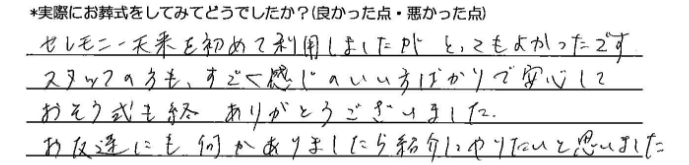 *実際にお葬式をしてみてどうでしたか?(良かった点・悪かった点)
セレモニー天来を初めて利用しましたが とってもよかったです
スタッフの方も、すごく感じのいい方ばかりで安心して
おそう式も終 ありがとうございました.
お友達にも何かありましたら紹介しやりたいと思いました